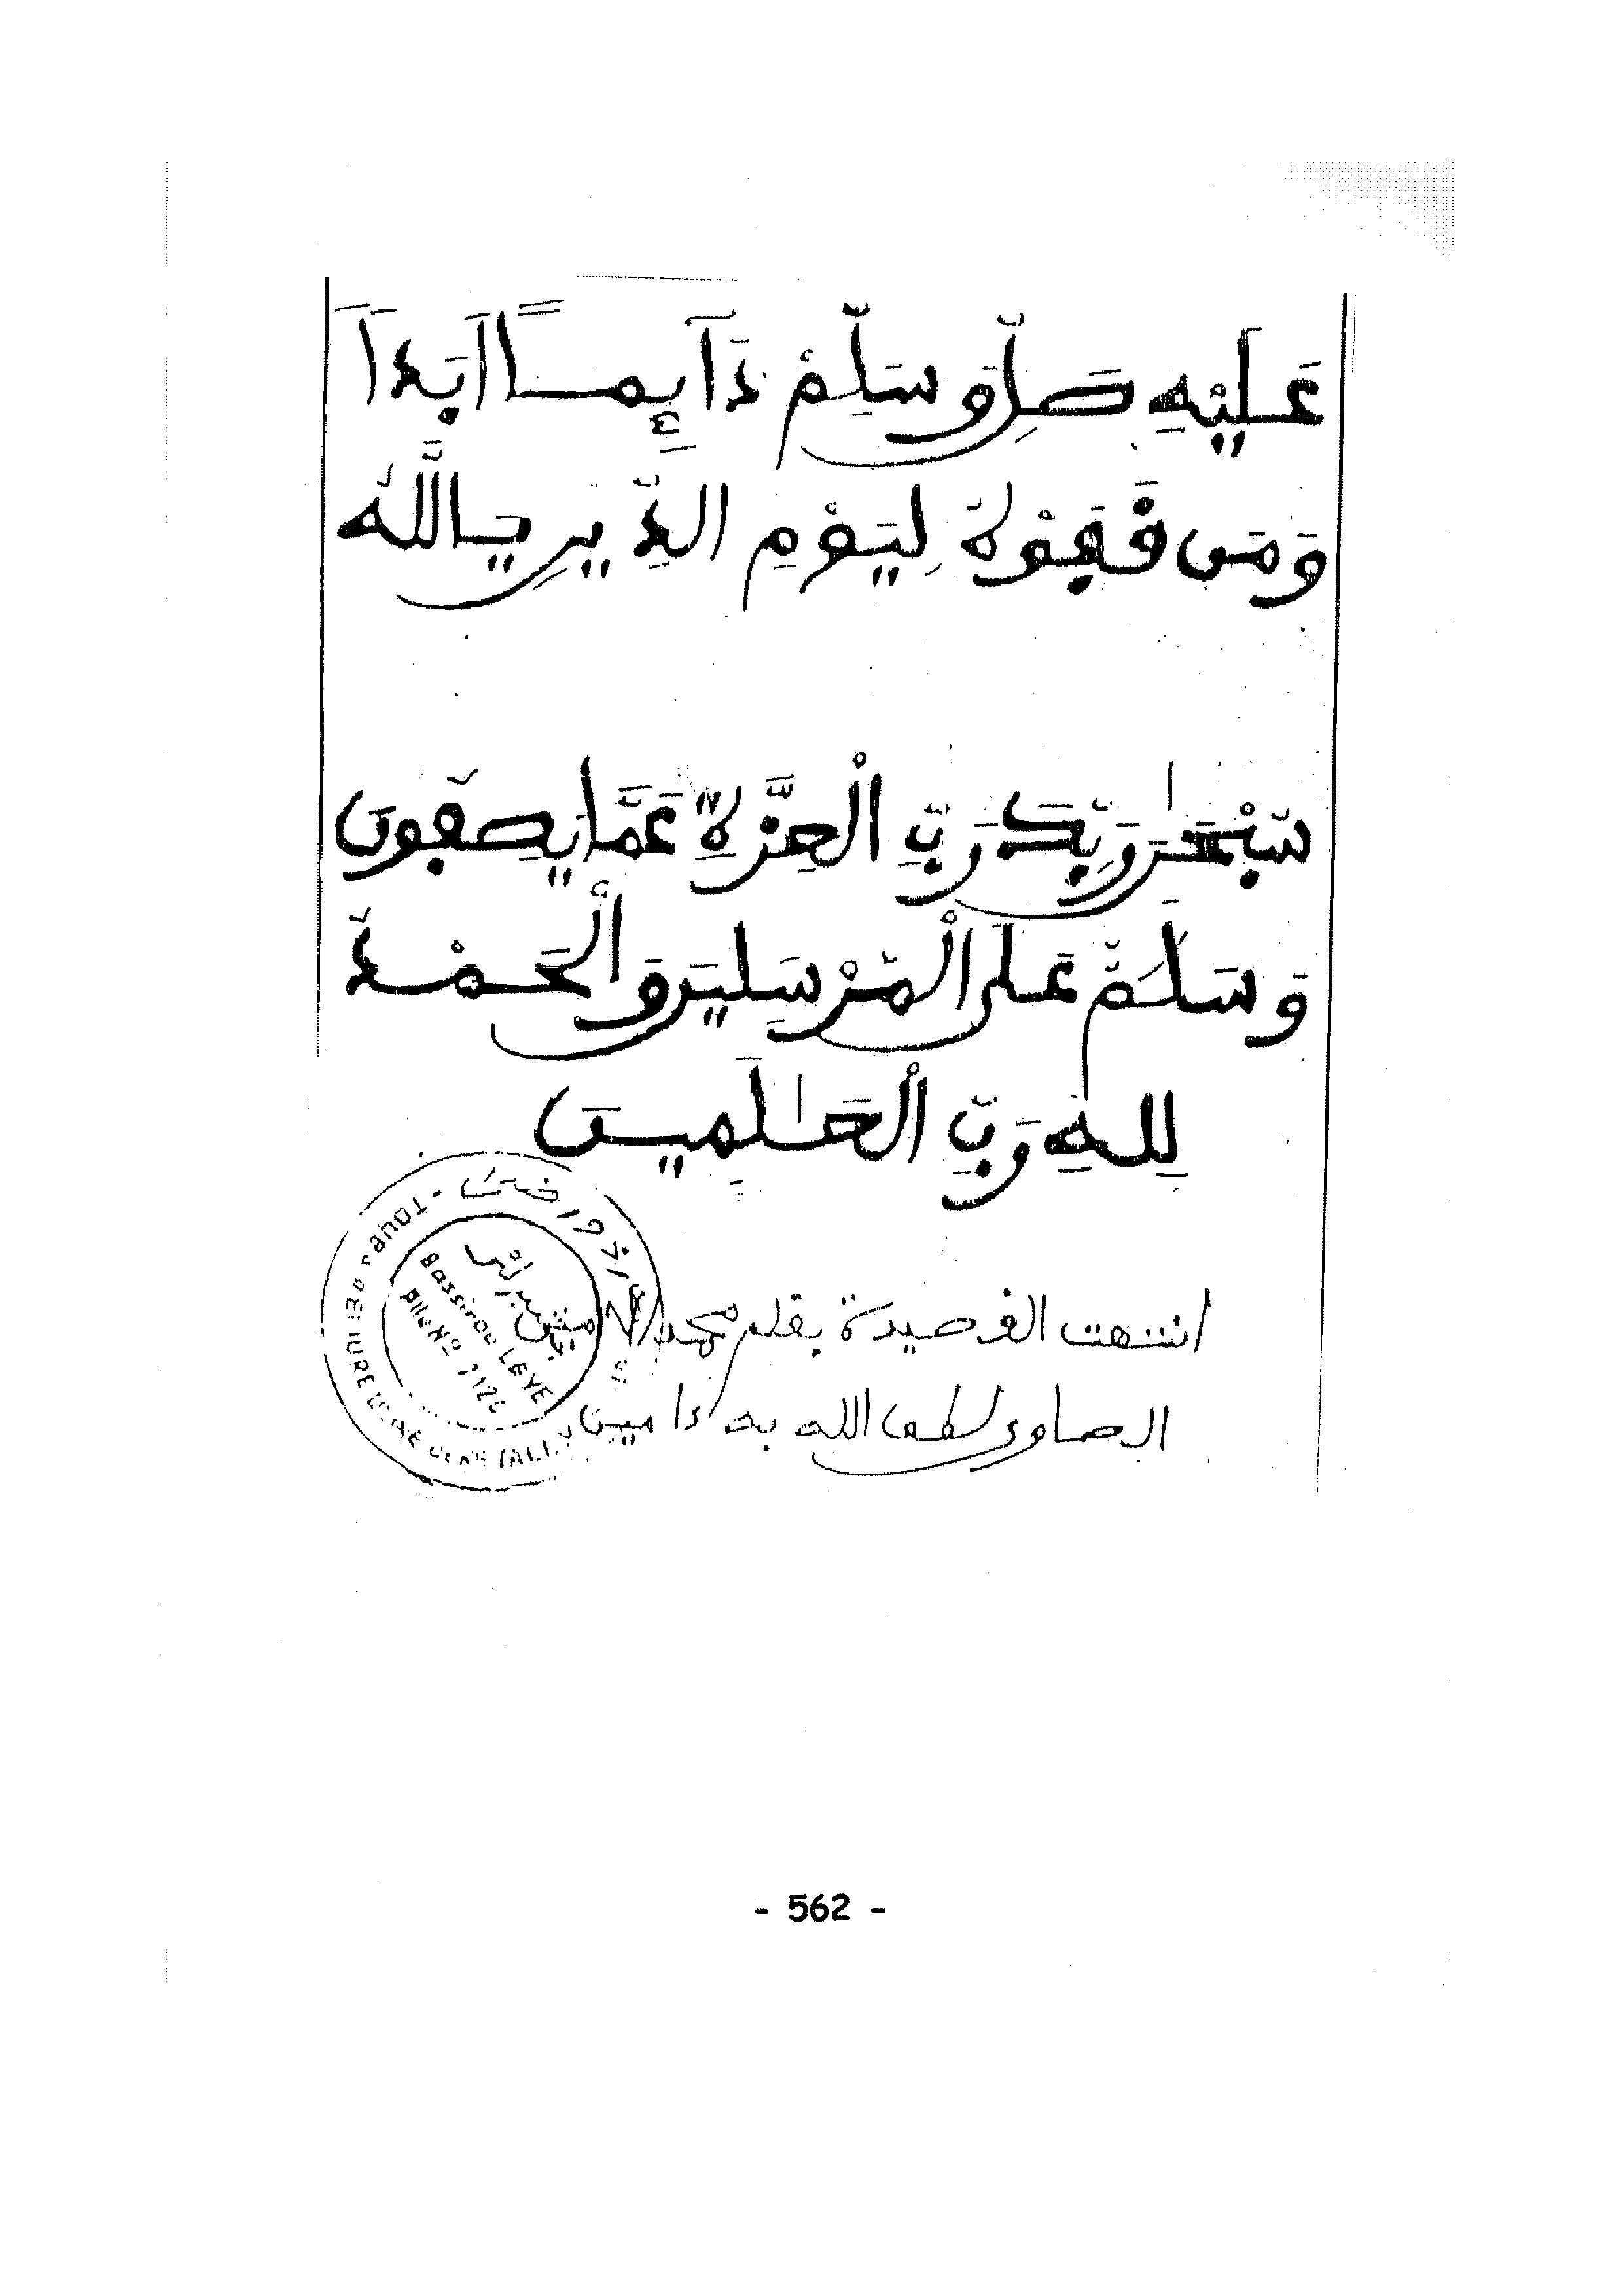 عَلَيْهِ صَلِّ وَسَلِّمْ دَآئِمًا اَبَدَا
وَمَن قَفَوْهُ لِيَوْمِ الدِّينِ يَا اَللَّهُ
سُبْحَٰنَ رَبِّكَ رَبِّ الْعِزَّةِ عَمَّا يَصِفُونَ
وَسَلَٰمٌ عَلَى الْمُرْسَلِينَ وَالْحَمْدُ
لِلهِ رَبِّ الْعَٰلَمِينَ
انتهت القصيدة بقلم محمد الامين
الصاوي لطف الله به ءامين
TOUBA
Bassirou LEYE
- 562 -